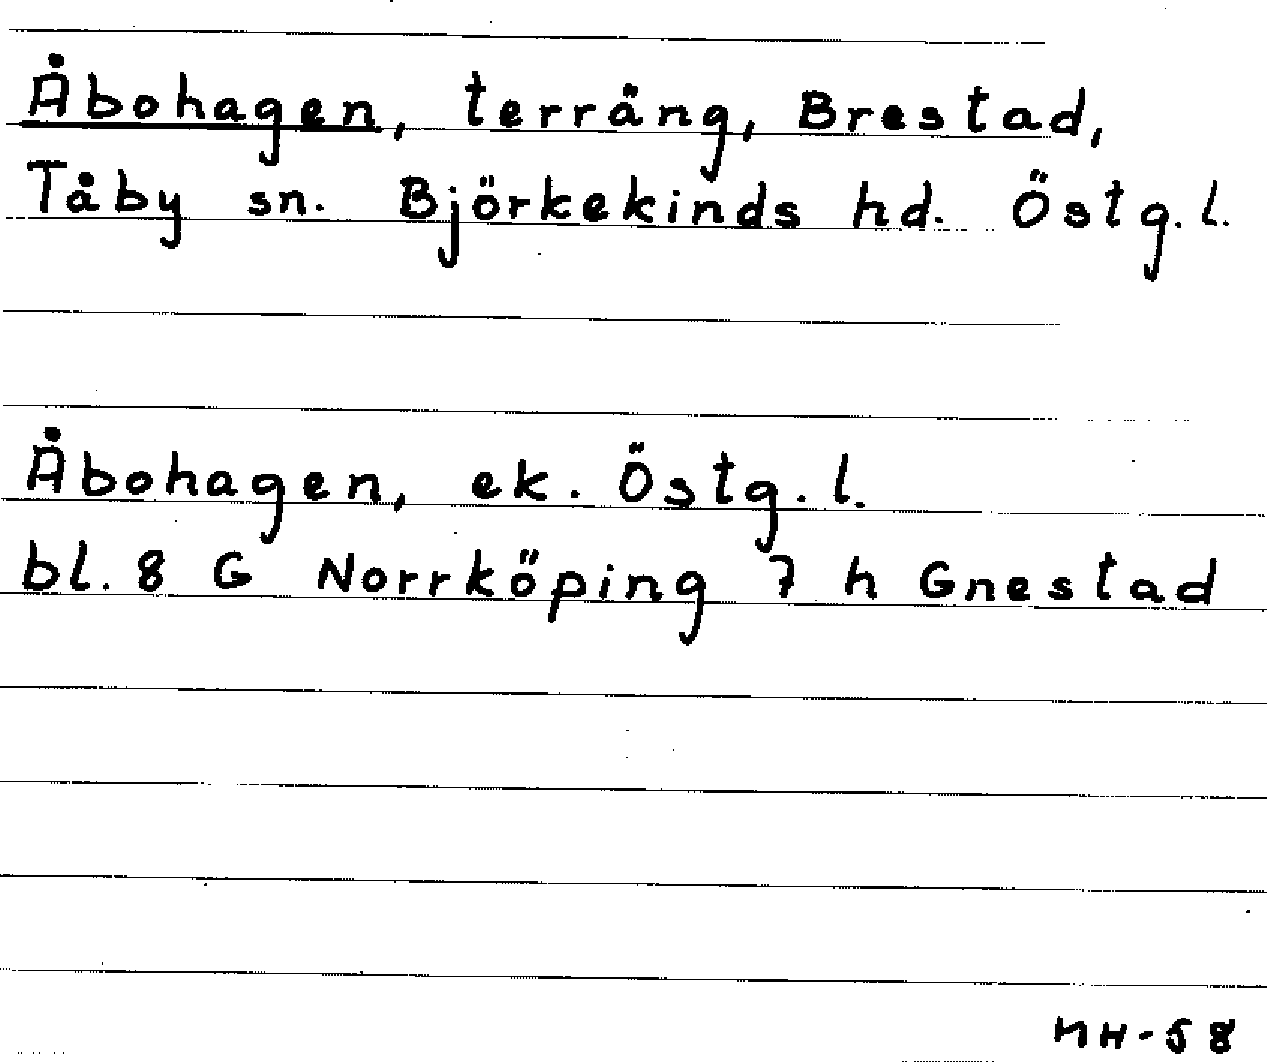 Åbohagen, terräng, Brestad,
Tåby sn. Björkekinds hd. Östg.l.
Åbohagen, ek. Östg.l.
bl. 8 G Norrköping 7 h Gnestad
NH-58